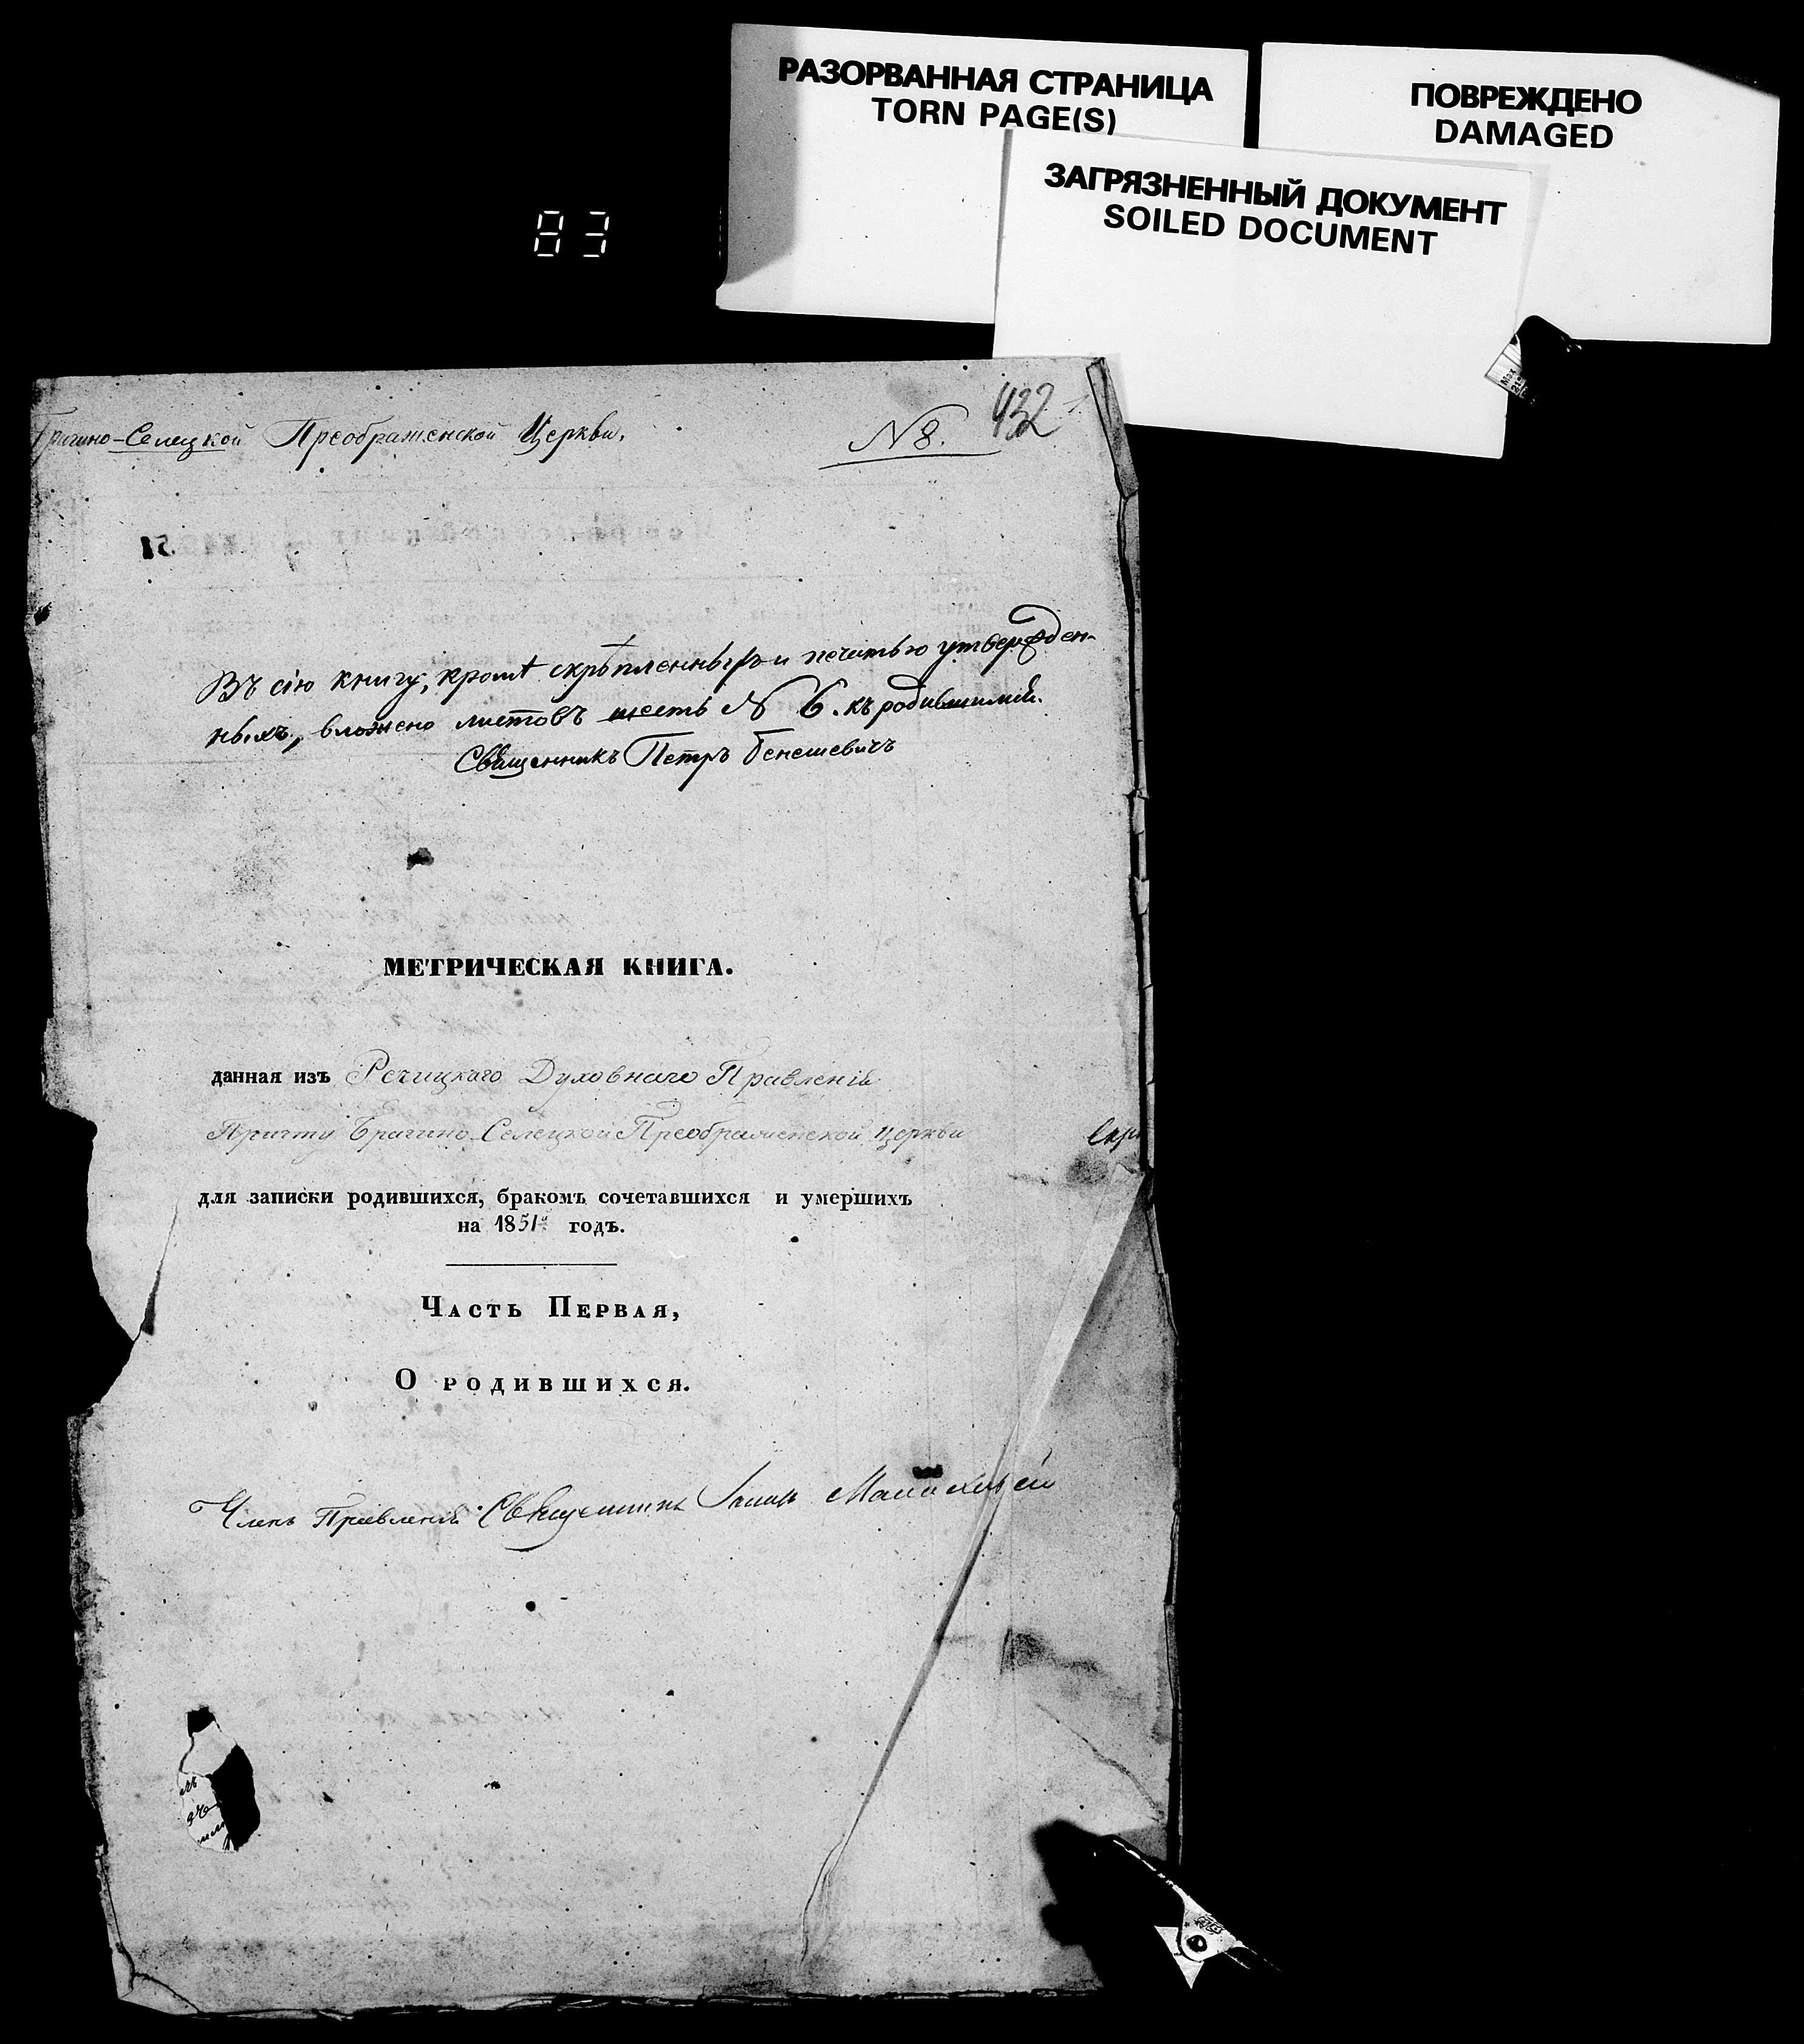 РАЗОРВАННАЯ СТРАНИЦА
TORN PAGE(S)
ПОВРЕЖДЕНО
DAMAGED
ЗАГРЯЗНЕННЫЙ ДОКУМЕНТ
SOILED DOCUMENT
83
432
Брагино-Селецкой Преображенской Церкви,
N 8.
Въ сію книгу, кромѣ скрѣпленныхъ и печатью утвержден-
ныхъ, вложено листовъ шесть N 6. къ родившимся.
Священникъ Петръ Бенешевичъ
МЕТРИЧЕСКАЯ КНИГА.
данная изъ Речицкаго Духовнаго Правленія
Причту Брагино-Селецкой Преображенской Церкви
Скрѣ
для записки родившихся, бракомъ сочетавшихся и умершихъ
на 1851й годъ.
Часть Первая,
О родившихся.
Членъ Правленія Священникъ Іоаннъ